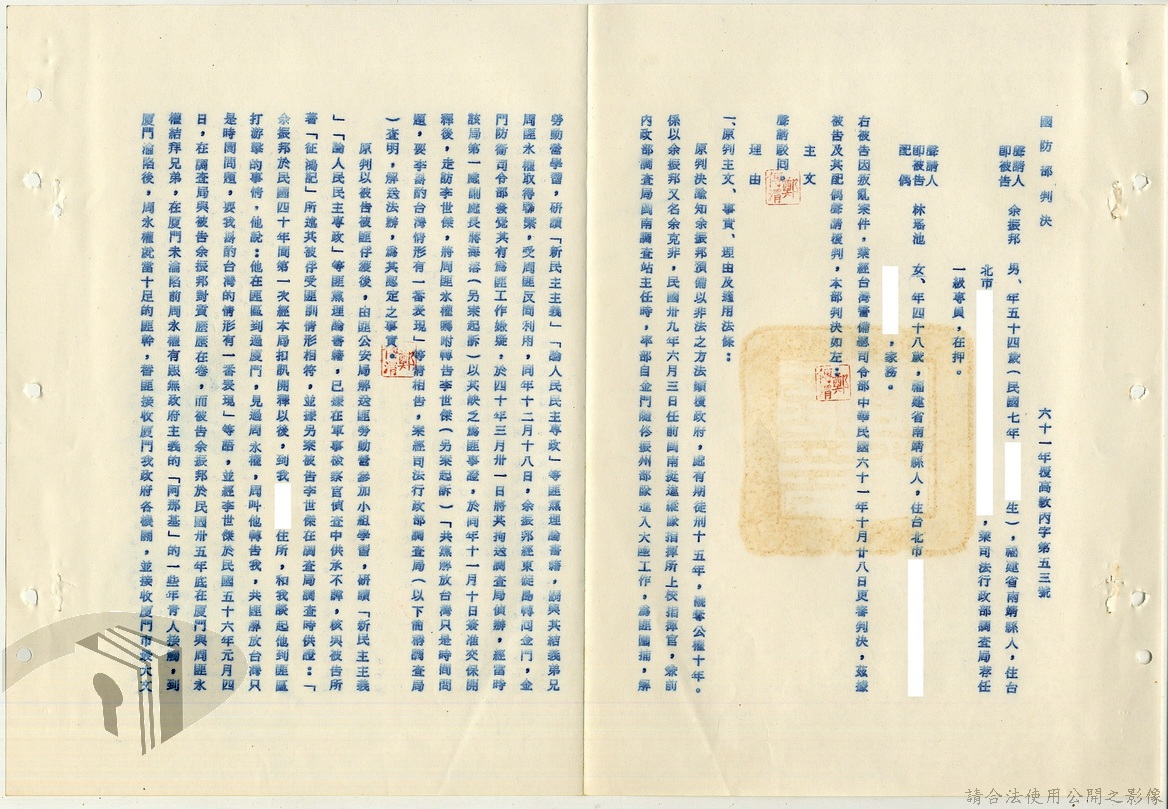 國防部判決
六十一年覆高敦丙字第五三號
聲請人
即被告
余振邦 男、年五十四歲(民國七年 生),福建省南靖縣人,住台
北市 ,業司法行政部調查局荐任
一級專員,在押。
聲請人
即被告
配偶
林培池 女、年四十八歲,福建省南靖縣人,住台北市
,家務。
右被告因叛亂案件,業經台灣警備總司令部中華民國六十一年十月廿八日更審判決,茲據
被告及其配偶聲請覆判,本部判決如左:
主文
聲請駁回。
理由
一、原判主文、事實、理由及適用法條:
原判決諭知余振邦預備以非法之方法顛覆政府,處有期徒刑十五年,褫奪公權十年。
係以余振邦又名余克非,民國卅九年六月三日任前閩南挺進縱隊指揮所上校指揮官,兼前
內政部調查局閩南調查站主任時,率部自金門隨修振州部隊進入大陸工作,為匪圍捕,解
勞動營學習,研讀「新民主主義」「論人民民主專政」等匪黨理論書籍,嗣與其結義弟兄
周匪永權取得聯繫,受周匪反間利用,同年十二月十八日,余振邦經東碇島轉回金門,金
門防衛司令部發覺其有為匪工作嫌疑,於四十年三月卅一日將其拘送調查局偵辦,經當時
該局第一處副處長蔣海溶(另案起訴)以其缺乏為匪事證,於同年十一月十日簽准交保開
釋後,走訪李世傑,將周匪永權囑咐轉告李世傑(另案起訴)「共黨解放台灣只是時間問
題,要李爵的台灣情形有一番表現」等情相告,案經司法行政部調查局(以下簡稱調查局
)查明,解送法辦,為其認定之事實。
原判以被告被匪俘獲後,由匪公安局解送匪勞動營參加小組學習,研讀「新民主主義
」「論人民民主專政」等匪黨理論書籍,已據在軍事檢察官偵查中供承不諱,核與被告所
著「征鴻記」所述其被俘受匪訓情形相符,並據另案被告李世傑在調查局調查時供證:「
余振邦於民國四十年間第一次經本局扣訊開釋以後,到我 住所,和我談起他到匪區
打游擊的事情,他說:他在匪區到過廈門,見過周永權,周叫他轉告我,共匪解放台灣只
是時間問題,要我爵的台灣的情形有一番表現」等語,並經李世傑於民國五十六年元月四
日,在調查局與被告余振邦對質歷歷在卷,而被告余振邦於民國卅五年底在廈門與周匪永
權結拜兄弟,在廈門未淪陷前周永權有跟無政府主義的「阿那基」的一些年青人接觸,到
廈門淪陷後,周永權就當十足的匪幹,替匪接收廈門我政府各機關,並接收廈門市最大文
請合法使用公開之影像